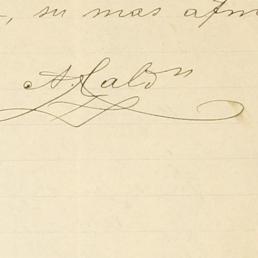 , su mas afmo
A. Caldn